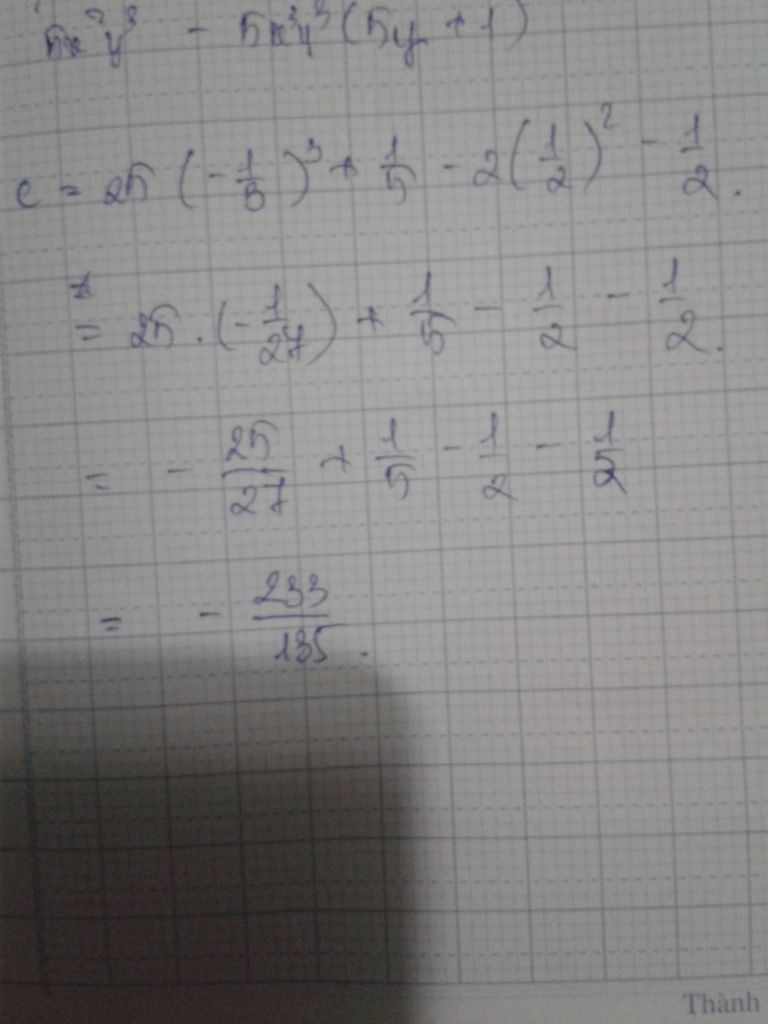 5x²y³ - 5x³y³(5y + 1)
C = 25(-1/3)³ + 1/5 - 2(1/2)² - 1/2.
= 25.(-1/27) + 1/5 - 1/2 - 1/2.
= - 25/27 + 1/5 - 1/2 - 1/2
= - 233/135.
Thành